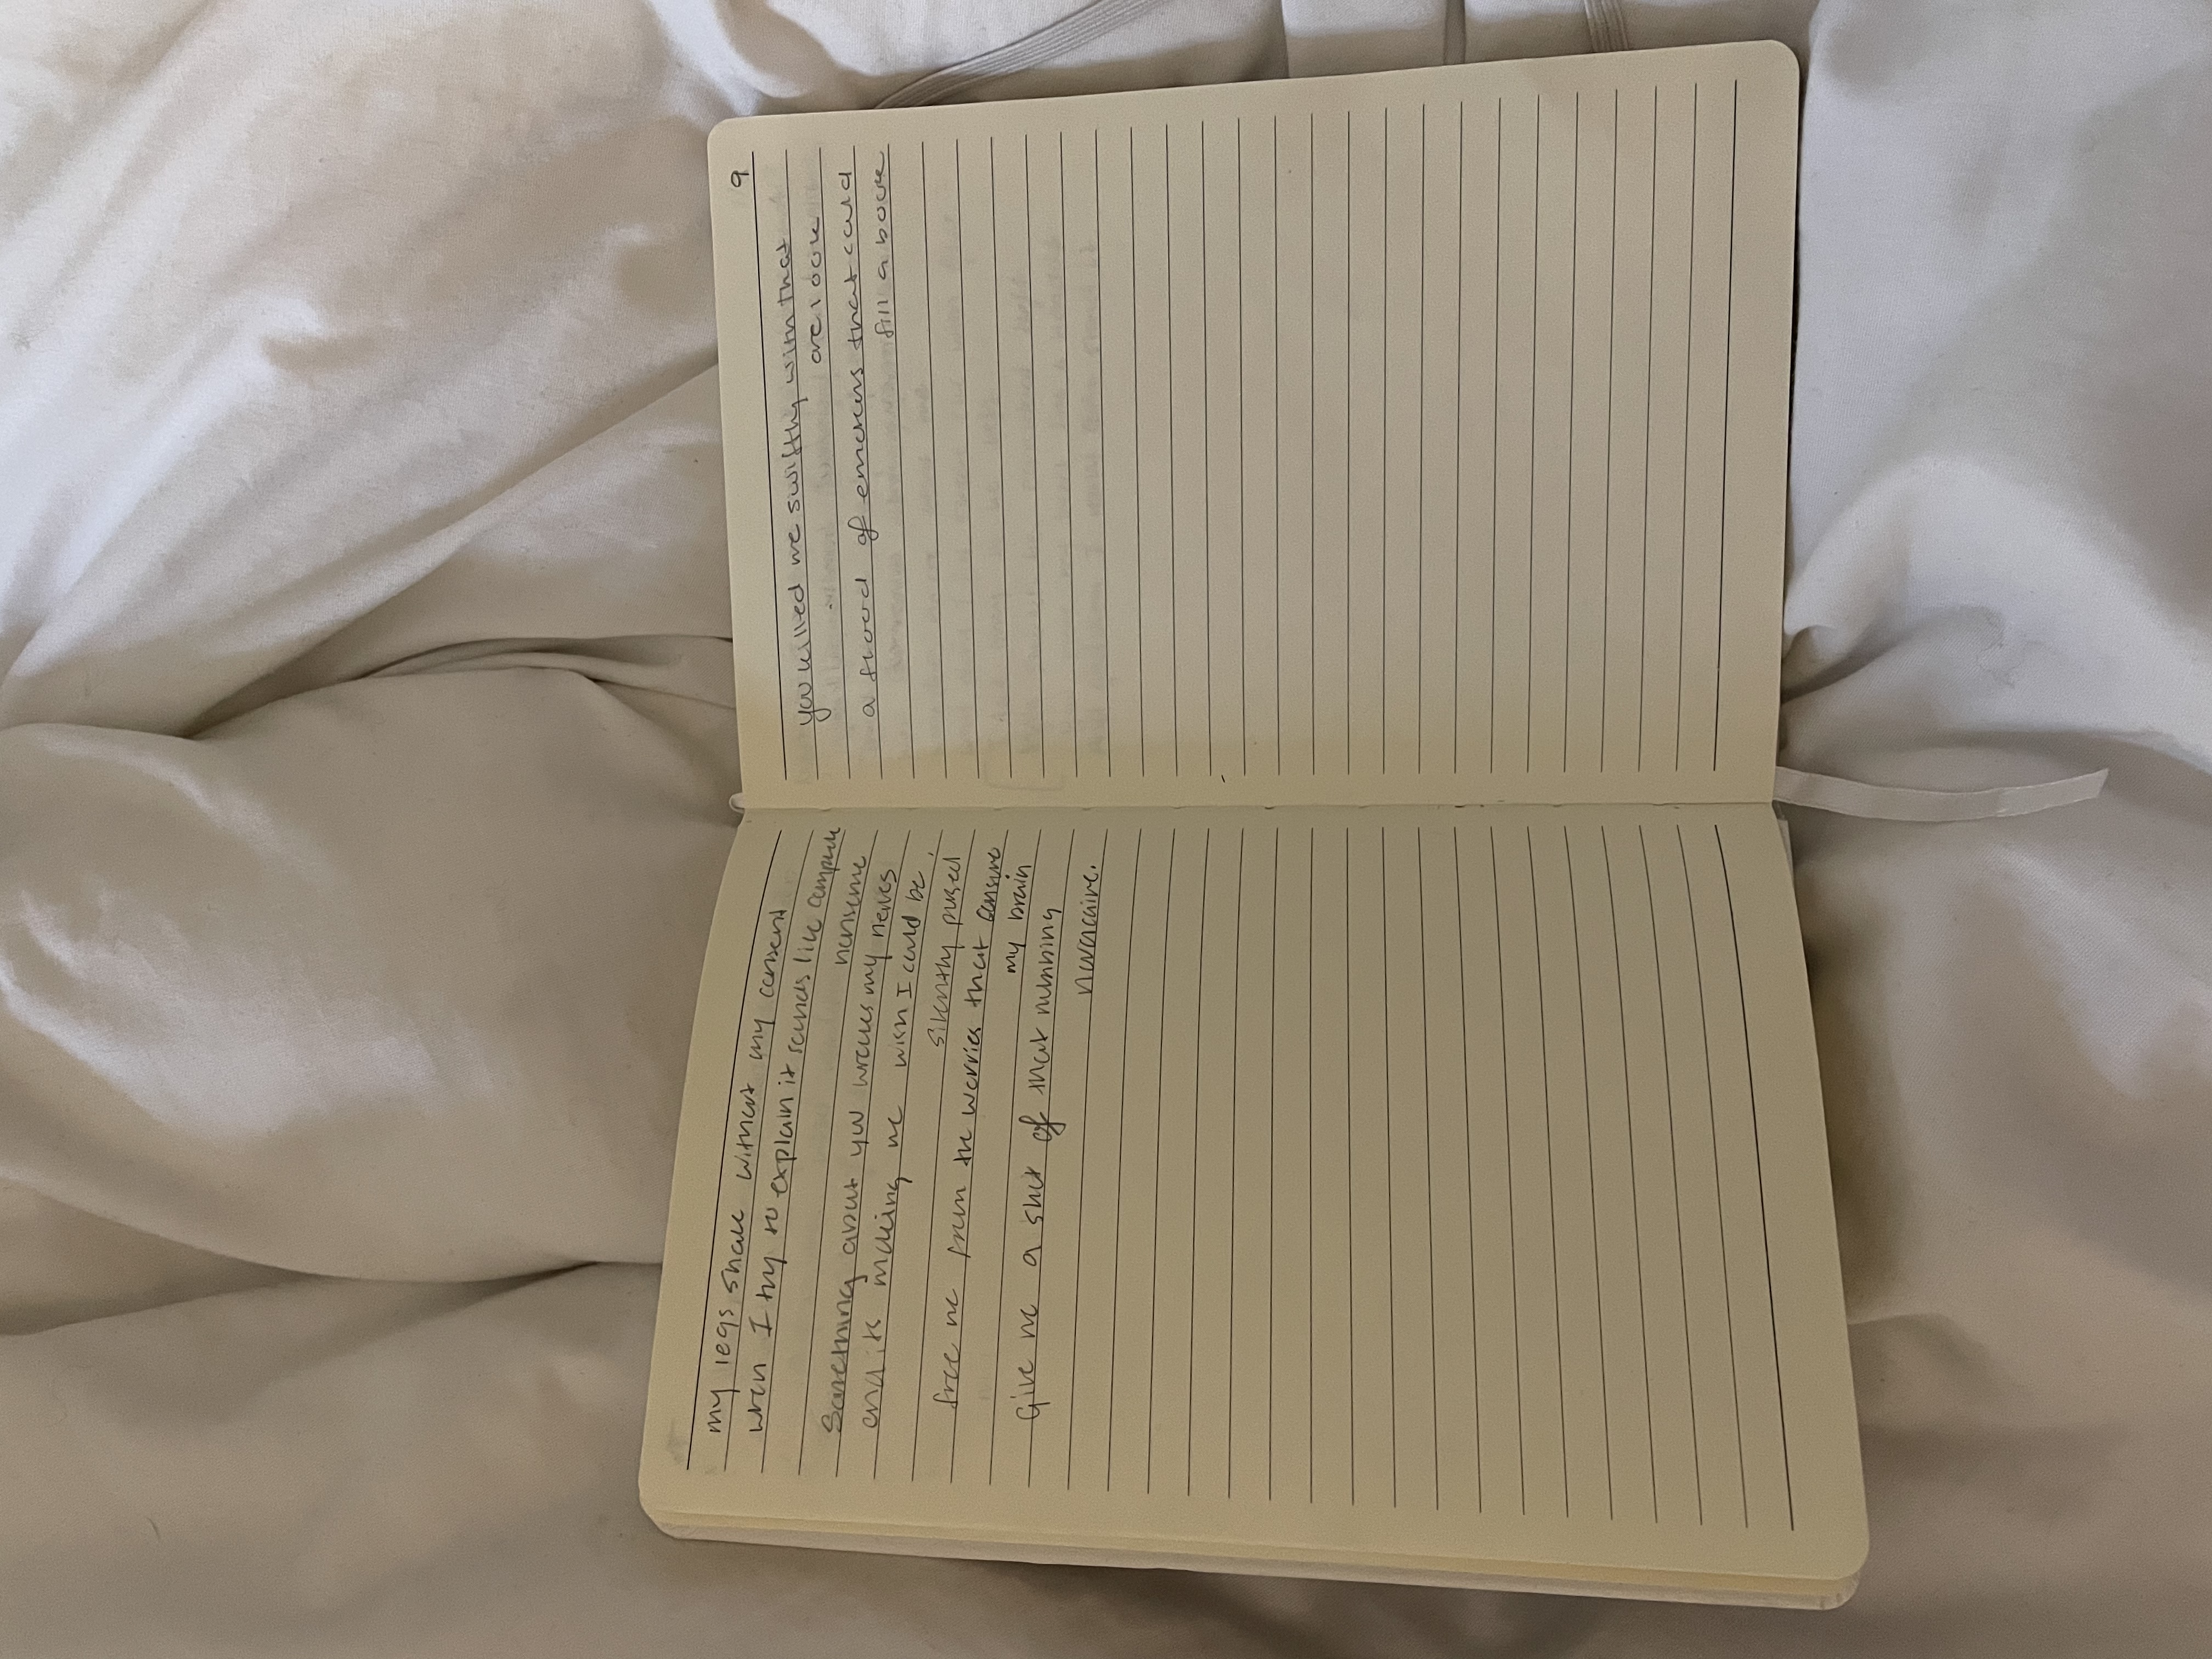 my legs shake without my consent
when I try to explain it sounds like complete
nonsense
Something about you wrecks my nerves
and its making me wish I could be
silently
free me from the worries that consume
my brain
Give me a shot of that numbing
novacaine.
9
you killed me swiftly with that
one look
a flood of emotions that could
fill a book